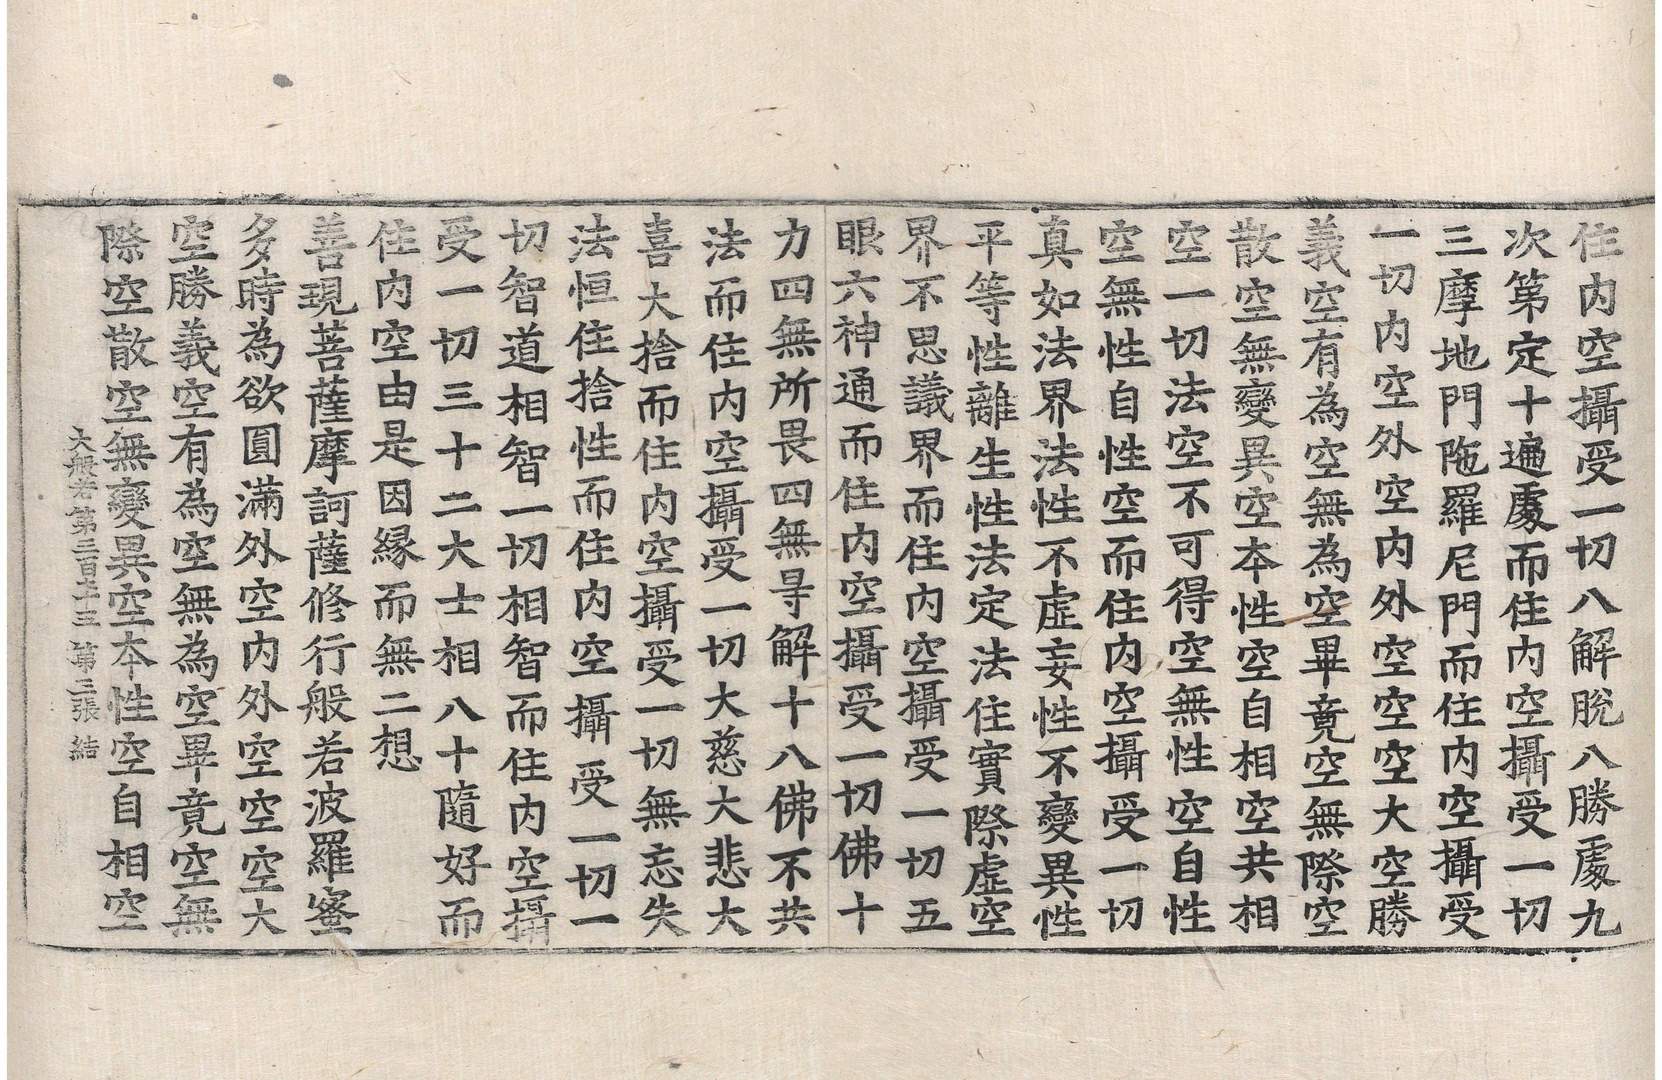 住内空攝受一切八解脫八勝處九
次第定十遍處而住内空攝受一切
三摩地門陁羅尼門而住内空攝受
一切内空外空内外空空空大空勝
義空有為空無為空畢竟空無際空
散空無變異空本性空自相空共相
空一切法空不可得空無性空自性
空無性自性空而住内空攝受一切
真如法界法性不虛妄性不變異性
平等性離生性法定法住實際虛空
界不思議界而住内空攝受一切五
眼六神通而住内空攝受一切佛十
力四無所畏四無㝵解十八佛不共
法而住内空攝受一切大慈大悲大
喜大捨而住内空攝受一切無忘失
法恒住捨性而住内空攝受一切一
切智道相智一切相智而住内空攝
受一切三十二大士相八十隨好而
住内空由是因緣而無二想
善現菩薩摩訶薩修行般若波羅蜜
多時為欲圓滿外空内外空空空大
空勝義空有為空無為空畢竟空無
際空散空無變異空本性空自相空
大般若第三百七十三 第三張 結